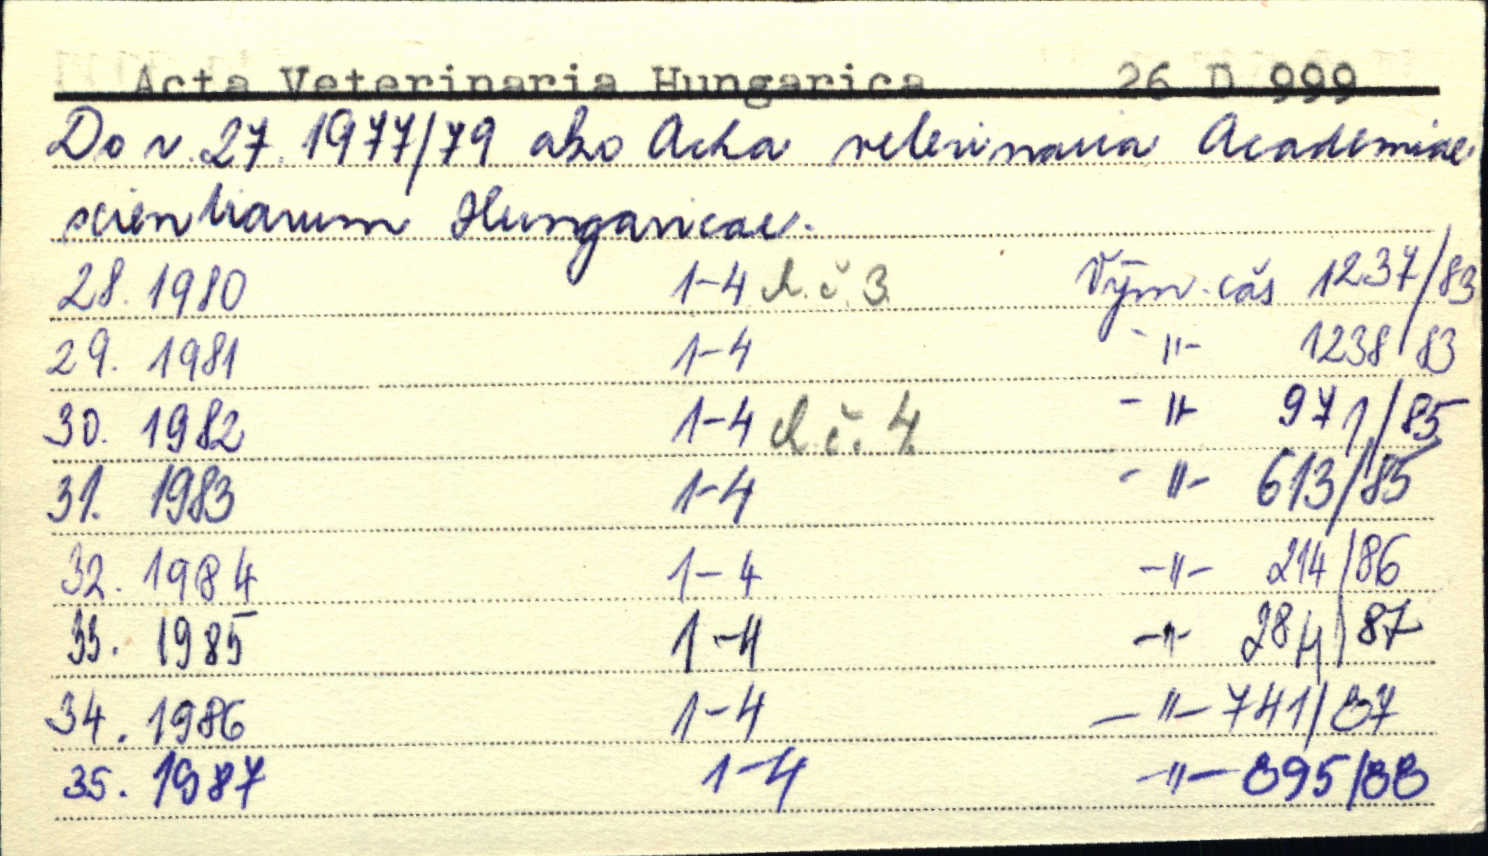 Acta Veterinaria Hungarica 26 D 999
Do r. 27. 1977/79 ako Acta veterinaria Academiae
scientiarum Hungaricae.
28. 1980 1-4 ch. č. 3 Vým. čas 1237/83
29. 1981 1-4 -"- 1238/83
30. 1982 1-4 ch. č. 4 -"- 971/85
31. 1983 1-4 -"- 613/85
32. 1984 1-4 -"- 214/86
33. 1985 1-4 -"- 284/87
34. 1986 1-4 -"- 741/87
35. 1987 1-4 -"- 895/88